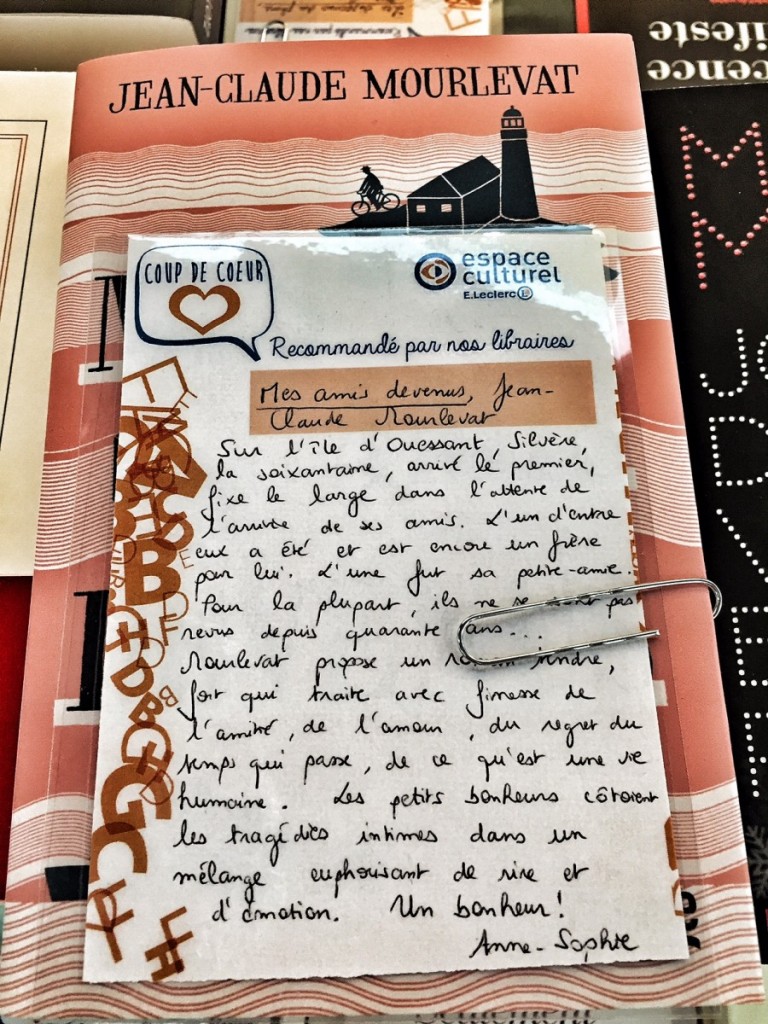 JEAN-CLAUDE MOURLEVAT
COUP DE COEUR
espace
culturel
E.Leclerc
Recommandé par nos libraires
Mes amis devenus, Jean-
Claude Mourlevat
Sur l'île d'Ouessant, Silvère,
la soixantaine, arrivé le premier,
fixe le large dans l'attente de
l'arrivée de ses amis. L'un d'entre
eux a été et est encore un frère
pour lui. L'une fut sa petite-amie.
Pour la plupart, ils ne se sont pas
revus depuis quarante ans...
Mourlevat propose un roman tendre,
fort qui traite avec finesse de
l'amitié, de l'amour, du regret du
temps qui passe, de ce qu'est une vie
humaine. Les petits bonheurs côtoient
les tragédies intimes dans un
mélange euphorisant de rire et
d'émotion. Un bonheur!
Anne-Sophie